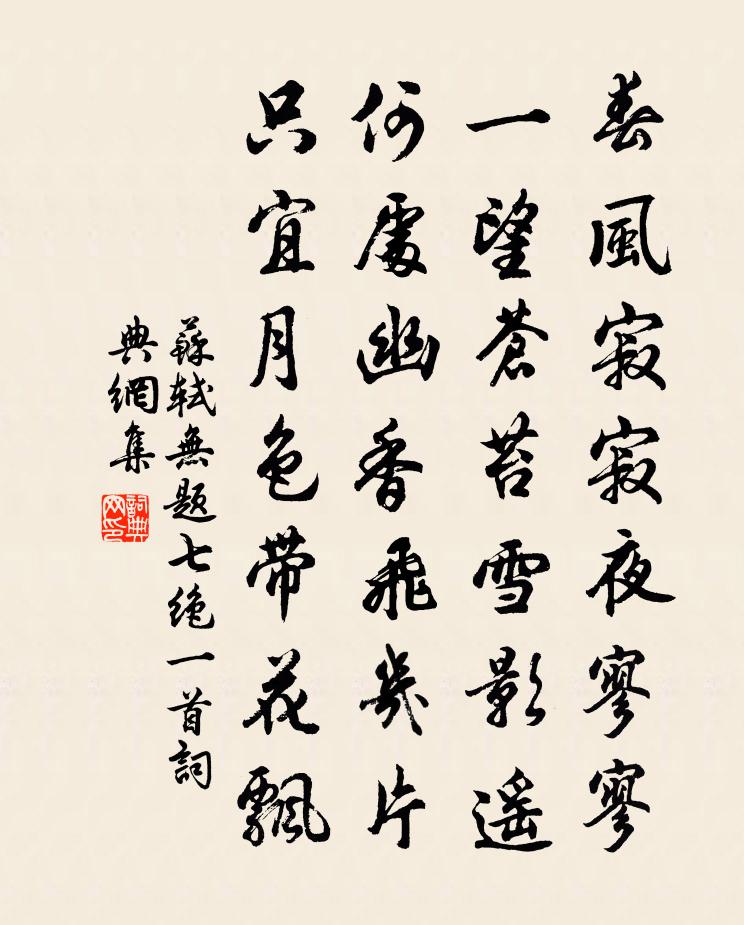 春風寂寂夜寥寥
一望蒼苔雪影遥
何處幽香飛幾片
只宜月色帶花飄
蘇軾無題七絶一首詞
典網集
詞典
网印